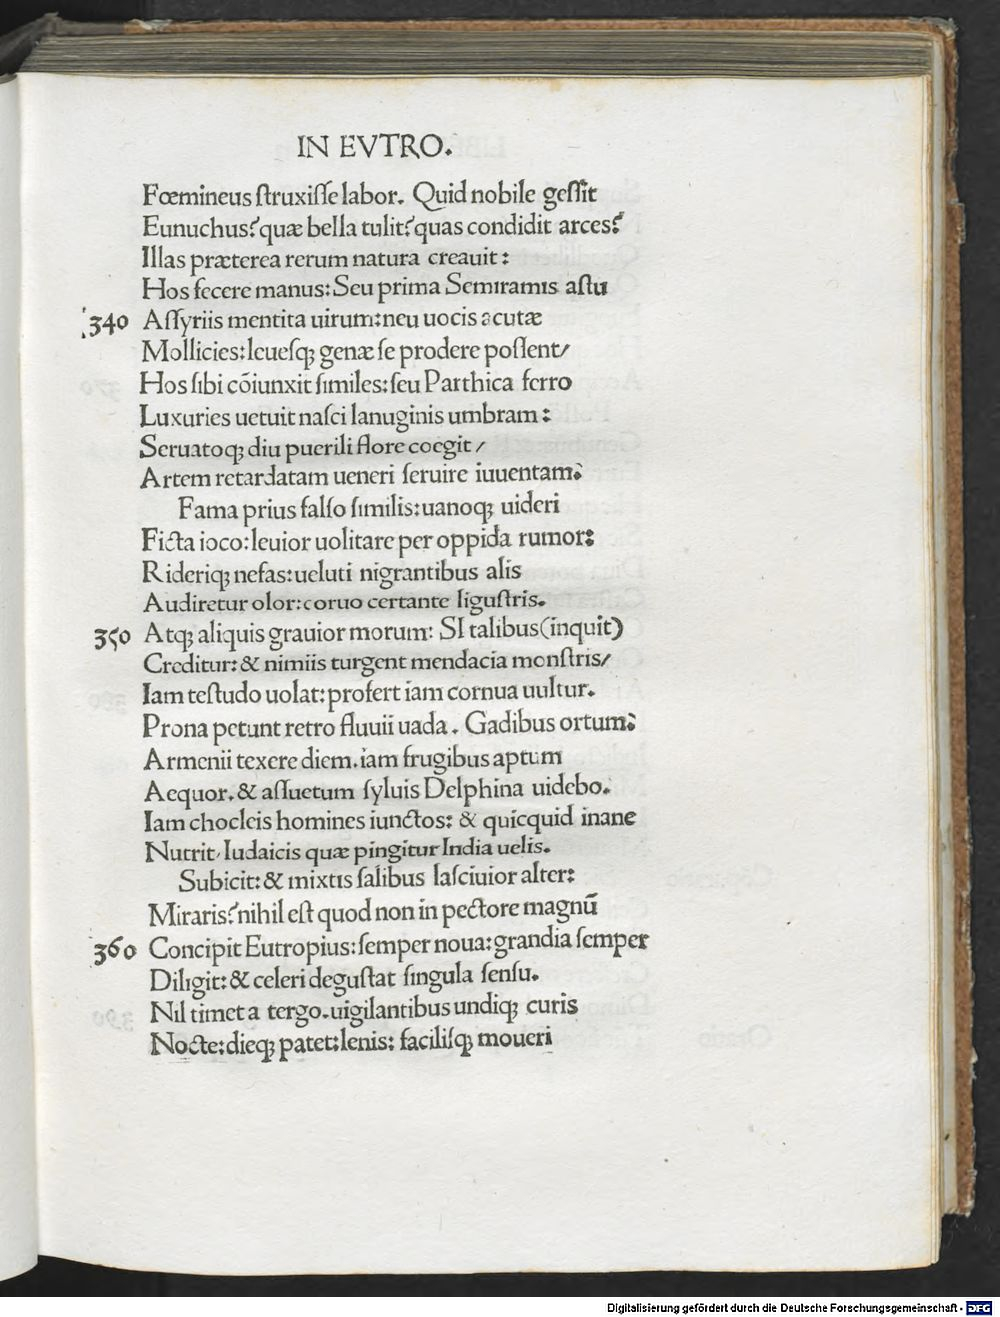 IN EVTRO.
Fœmineus ſtruxiſſe labor. Quid nobile geſſit
Eunuchus? quæ bella tulit? quas condidit arces?
Illas præterea rerum natura creauit:
Hos fecere manus: Seu prima Semiramis aſtu
340 Aſſyriis mentita uirum: neu uocis acutæ
Mollicies: leueſqꝫ genæ ſe prodere poſſent/
Hos ſibi cõiunxit ſimiles: ſeu Parthica ferro
Luxuries uetuit naſci lanuginis umbram:
Seruatoqꝫ diu puerili flore coegit/
Artem retardatam ueneri ſeruire iuuentam?
Fama prius falſo ſimilis: uanoqꝫ uideri
Ficta ioco: leuior uolitare per oppida rumor:
Rideriqꝫ nefas: ueluti nigrantibus alis
Audiretur olor: coruo certante liguſtris.
350 Atqꝫ aliquis grauior morum: SI talibus (inquit)
Creditur: & nimiis turgent mendacia monſtris/
Iam teſtudo uolat: profert iam cornua uultur.
Prona petunt retro fluuii uada. Gadibus ortum?
Armenii texere diem. iam frugibus aptum
Aequor. & aſſuetum ſyluis Delphina uidebo.
Iam chocleis homines iunctos: & quicquid inane
Nutrit/ Iudaicis quæ pingitur India uelis.
Subicit: & mixtis ſalibus laſciuior alter:
Miraris? nihil eſt quod non in pectore magnũ
360 Concipit Eutropius: ſemper noua: grandia ſemper
Diligit: & celeri deguſtat ſingula ſenſu.
Nil timet a tergo. uigilantibus undiqꝫ curis
Nocte: dieqꝫ patet: lenis: faciliſqꝫ moueri
Digitalisierung gefördert durch die Deutsche Forschungsgemeinschaft - DFG